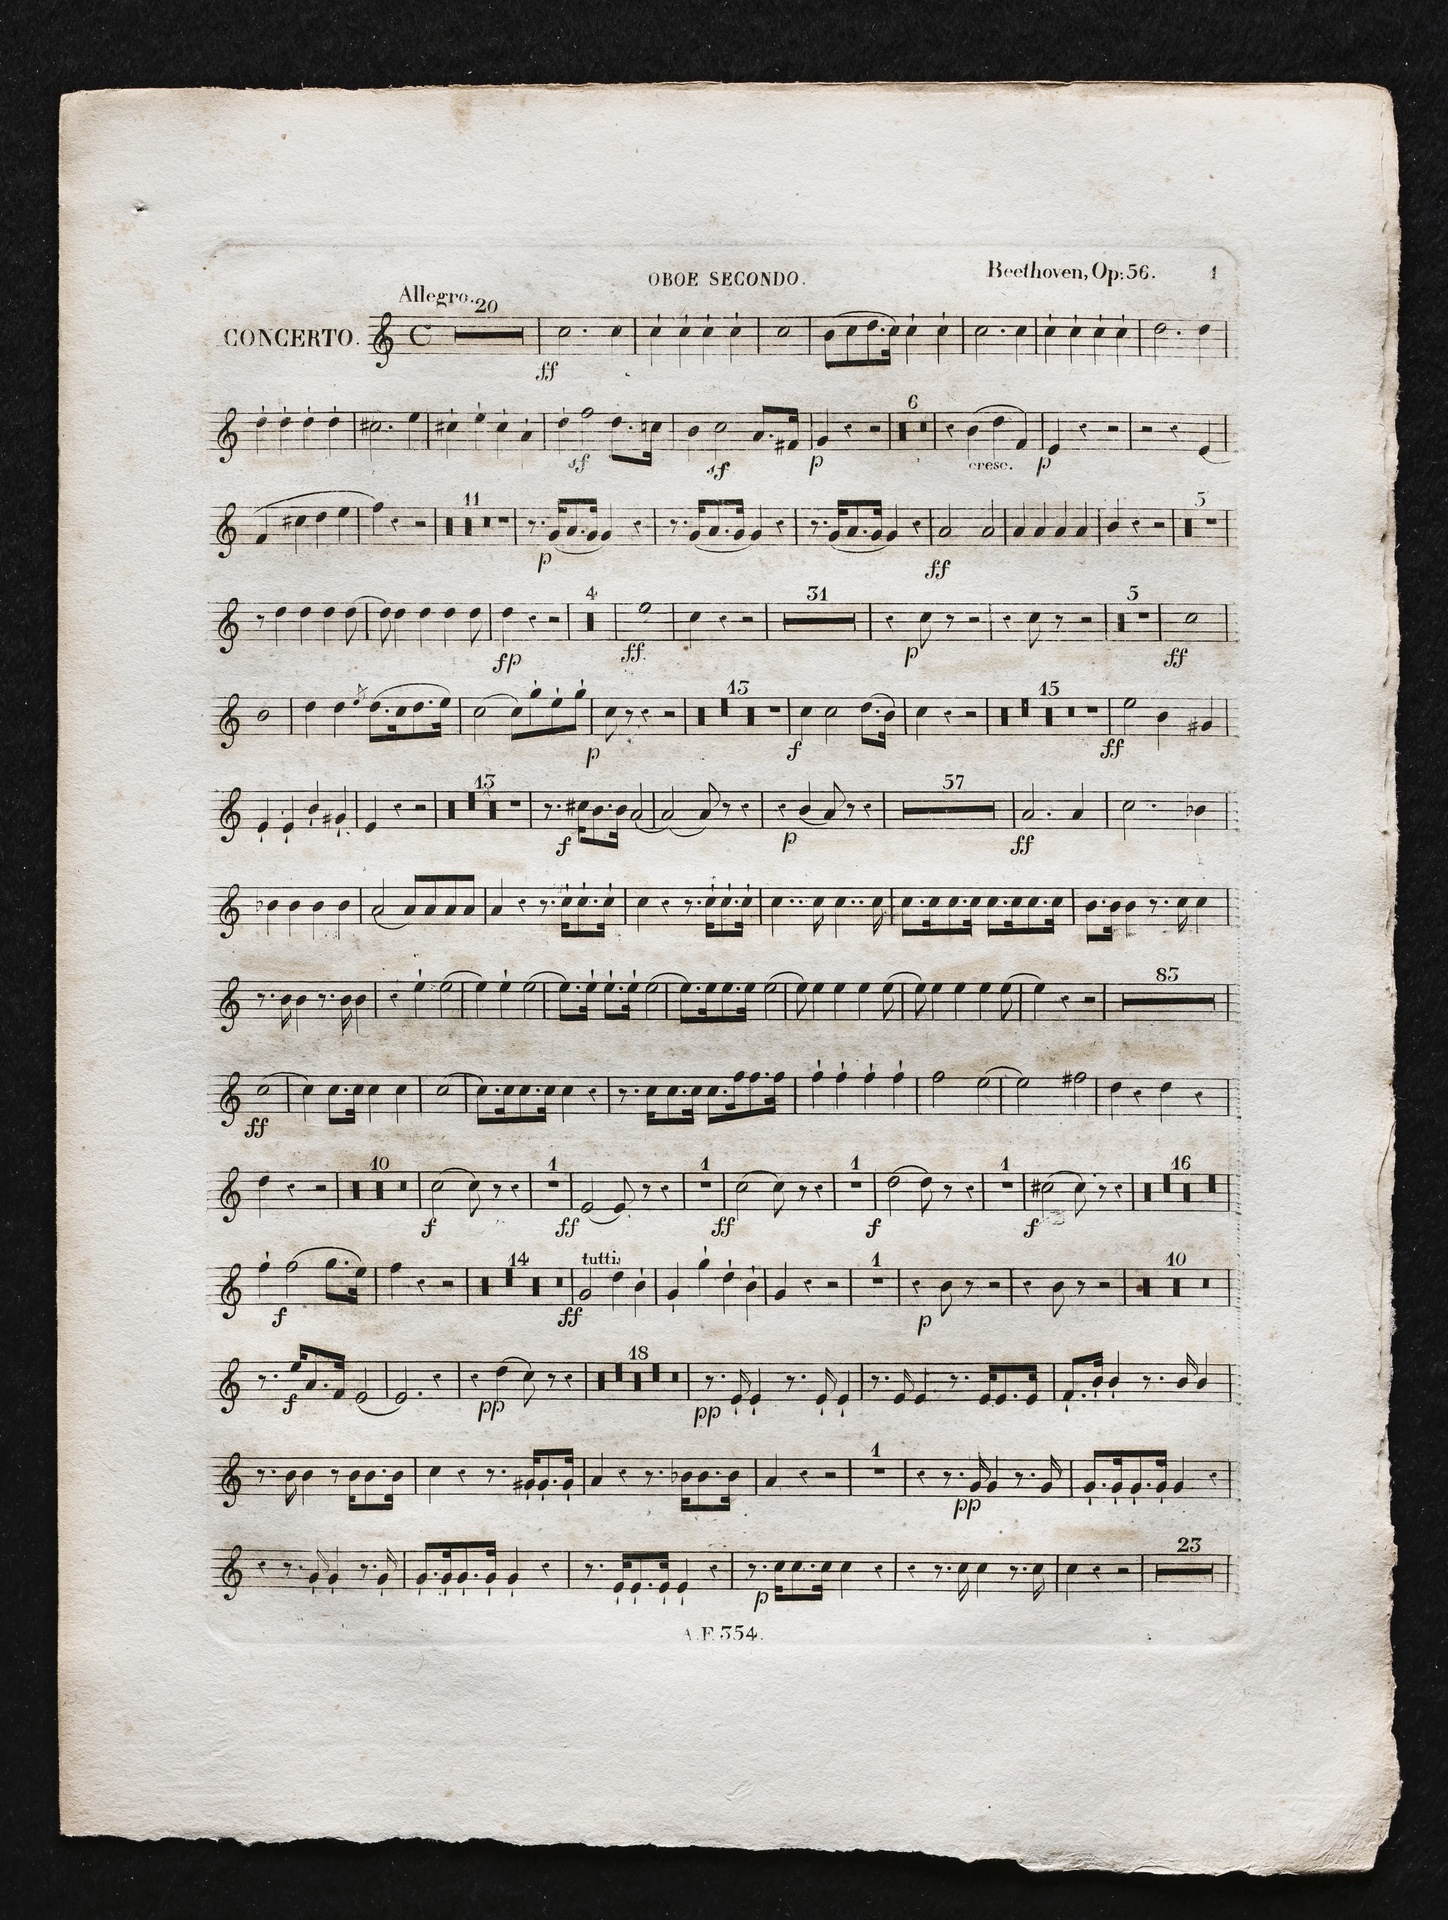 OBOE SECONDO.
Beethoven, Op: 56. 1
Allegro. 20
CONCERTO.
ff
6
sf sf p cresc. p
11 5
p ff
4 31 5
fp ff. p ff
13 15
p f ff
13 57
f p ff
83
ff
10 1 1 1 1 16
f ff ff f f
14 tutti 1 10
f ff p
18
f pp pp
1
pp
23
p
A.F. 354.